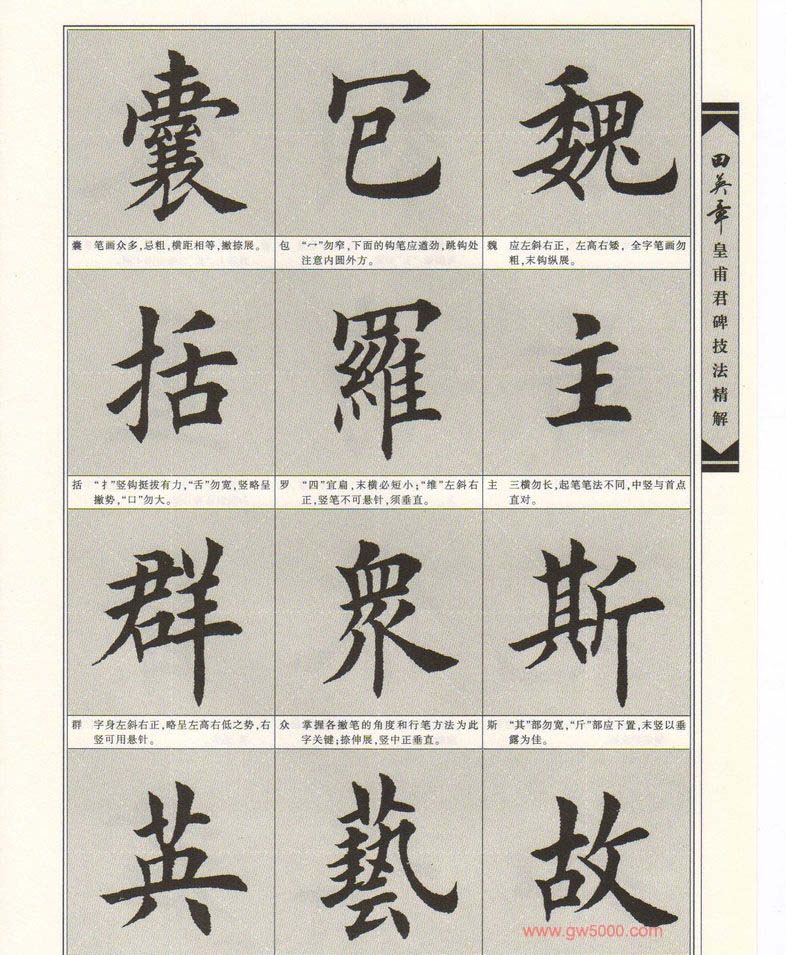 田英章皇甫君碑技法精解
魏
魏 应左斜右正，左高右矮，全字笔画勿
粗，末钩纵展。
主
主 三横勿长，起笔笔法不同，中竖与首点
直对。
斯
斯 “其”部勿宽，“斤”部应下置，末竖以垂
露为佳。
故
包
包 “冖”勿窄，下面的钩笔应遒劲，跳钩处
注意内圆外方。
羅
罗 “四”宜扁，末横必短小；“维”左斜右
正，竖笔不可悬针，须垂直。
衆
众 掌握各撇笔的角度和行笔方法为此
字关键；捺伸展，竖中正垂直。
藝
囊
囊 笔画众多，忌粗，横距相等，撇捺展。
括
括 “扌”竖钩挺拔有力，“舌”勿宽，竖略呈
撇势，“口”勿大。
群
群 字身左斜右正，略呈左高右低之势，右
竖可用悬针。
英
www.gw5000.com